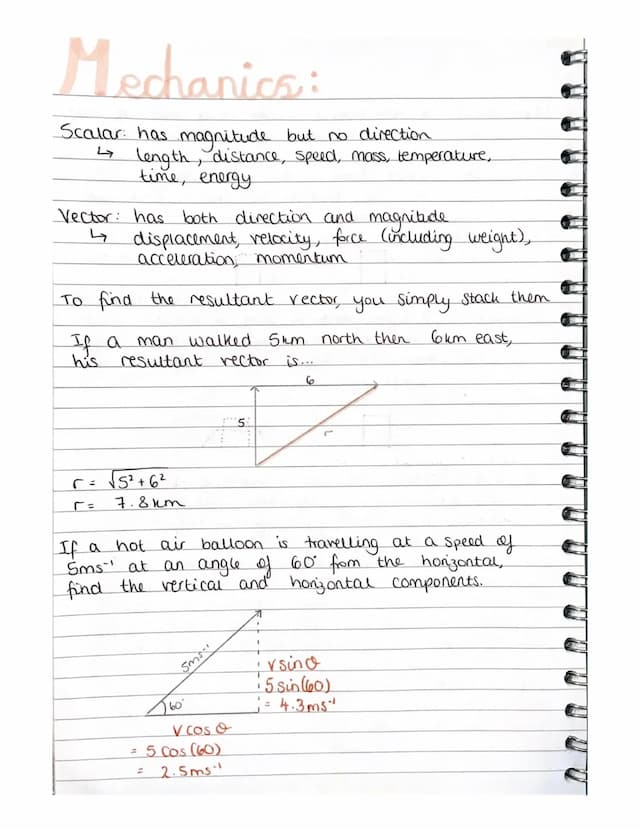 Mechanics:
Scalar: has magnitude but no direction
↳ length, distance, speed, mass, temperature,
time, energy
Vector: has both direction and magnitude
↳ displacement, velocity, force (including weight),
acceleration, momentum
To find the resultant vector, you simply stack them
If a man walked 5km north then 6km east,
his resultant vector is...
6
5
r
r = √5²+6²
r = 7.8km
If a hot air balloon is travelling at a speed of
5ms⁻¹ at an angle of 60° from the horizontal,
find the vertical and horizontal components.
5ms⁻¹
60°
v sin θ
5 sin(60)
= 4.3ms⁻¹
v cos θ
= 5 cos(60)
= 2.5ms⁻¹